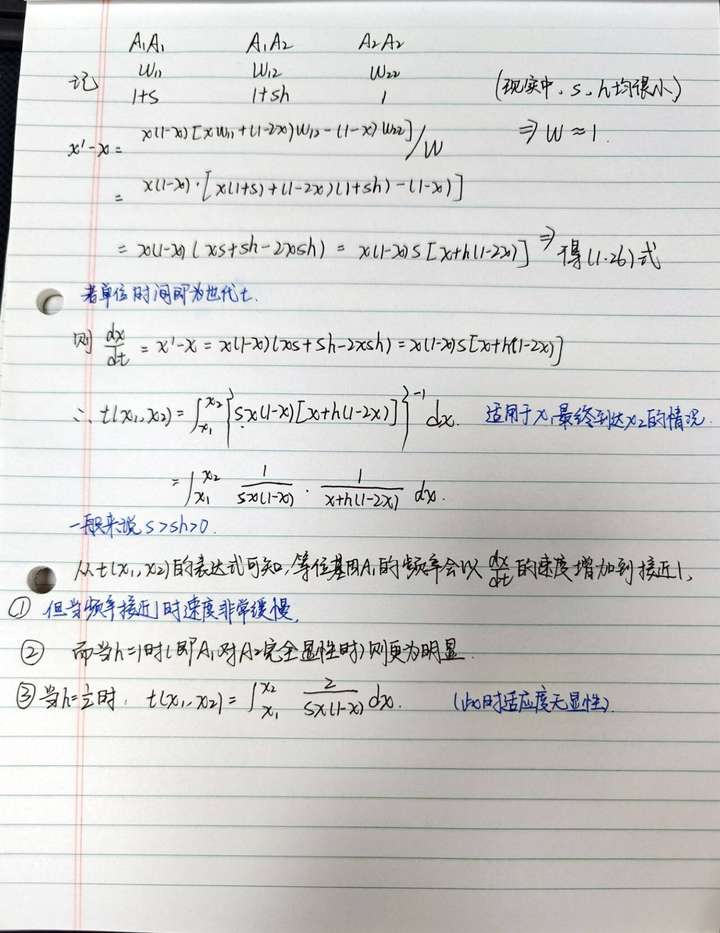 A₁A₁ A₁A₂ A₂A₂
记 W₁₁ W₁₂ W₂₂
1+s 1+sh 1 (现实中, s, h均很小)
x'-x = x(1-x)[xW₁₁+(1-2x)W₁₂-(1-x)W₂₂]/W ⇒ W≈1.
= x(1-x)·[x(1+s)+(1-2x)(1+sh)-(1-x)]
= x(1-x)(xs+sh-2xsh) = x(1-x)s[x+h(1-2x)] ⇒ 得(1.26)式
若单位时间即为世代t.
则 dx/dt = x'-x = x(1-x)(xs+sh-2xsh) = x(1-x)s[x+h(1-2x)]
∴ t(x₁,x₂) = ∫_{x₁}^{x₂} {sx(1-x)[x+h(1-2x)]}⁻¹ dx. 适用于x₁最终到达x₂的情况.
= ∫_{x₁}^{x₂} 1/sx(1-x) · 1/x+h(1-2x) dx.
一般来说 s>sh>0.
从t(x₁,x₂)的表达式可知, 等位基因A₁的频率会以 dx/dt 的速度增加到接近1,
① 但当频率接近1时速度非常缓慢,
② 而当h=1时(即A₁对A₂完全显性时)则更为明显.
③ 当h=½时, t(x₁,x₂) = ∫_{x₁}^{x₂} 2/sx(1-x) dx. (此时适应度无显性)